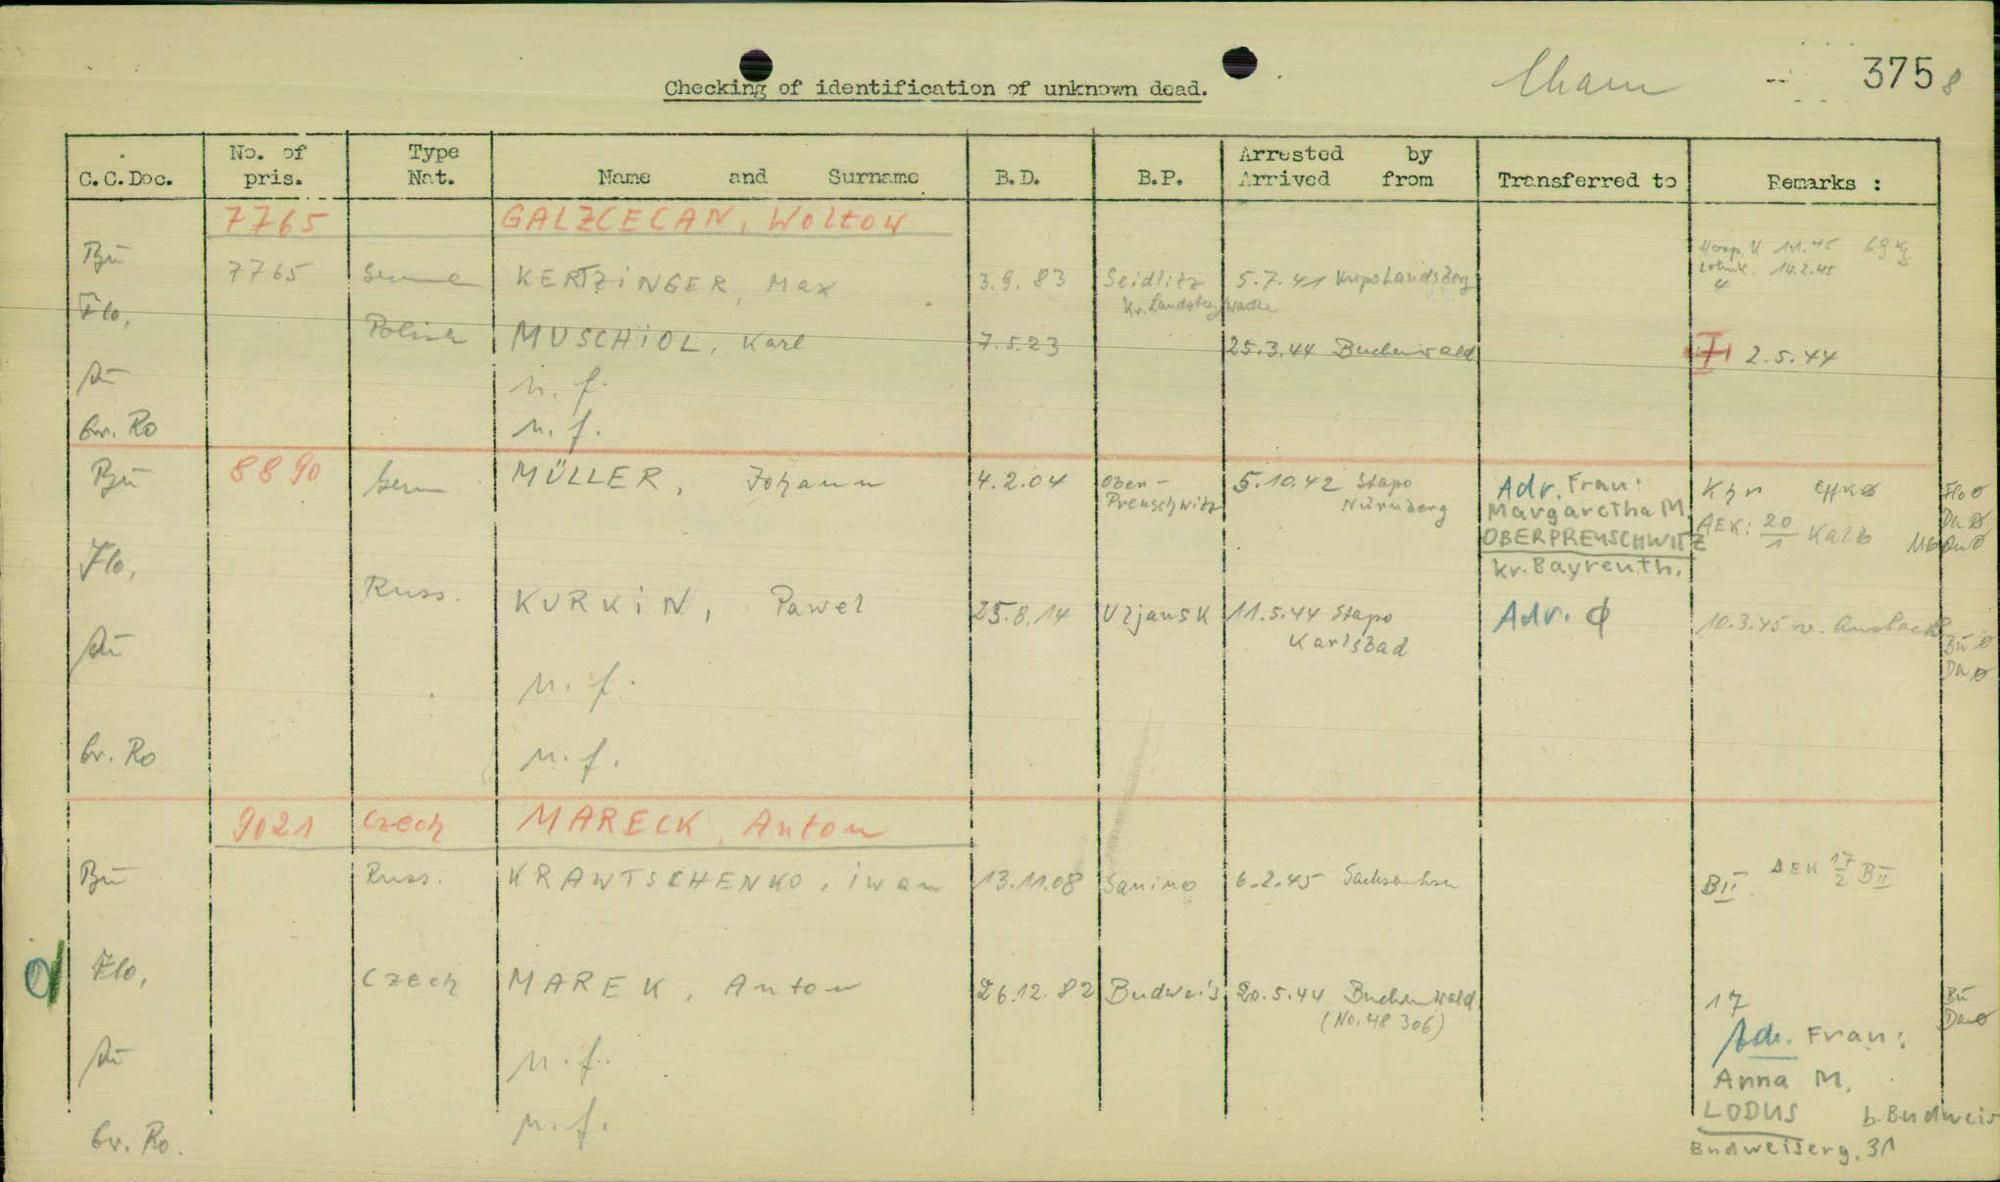 Cham 375 8
Checking of identification of unknown dead.
C.C.Doc. No. of pris. Type Nat. Name and Surname B.D. B.P. Arrested by Arrived from Transferred to Remarks :
7765 GALZCECAN, Woltow
Bu 7765 KERTZINGER, Max 3.9.83 Seidlitz 5.7.41 Kripo Landsberg 14.2.45 69 kg
Kr. Landsberg Warthe
Flo, Polish MUSCHIOL, Karl 7.5.23 25.3.44 Buchenwald 2.5.44
Au n.f.
Gr. Ro n.f.
Bu 8890 Germ MÜLLER, Johann 4.2.04 Ober- 5.10.42 Stapo Adr. Frau:
Preuschwitz Nürnberg Margaretha M
OBERPREUSCHWITZ AEK: 20/1 Kalb
Kr. Bayreuth.
Flo ø
Da ø
Flo, Russ. KURKIN, Pawel 25.8.14 Uljansk 11.5.44 Stapo Adr. ϕ 10.3.45 v. Ansbach
Karlsbad
Bu ø
Da ø
Au n.f.
Gr. Ro n.f.
9021 Czech MARECK, Anton
Bu Russ. KRAWTSCHENKO, Iwan 13.11.08 Sanino 6.2.45 Sachsenhsn BII AEK 17/2 BII
Flo, Czech MAREK, Anton 26.12.82 Budweis 20.5.44 Buchenwald 17 Bu
(No. 48 306) Da ø
Adr. Frau:
Au n.f. Anna M.
LODUS b. Budweis
Gr. Ro. n.f. Budweiserg. 31